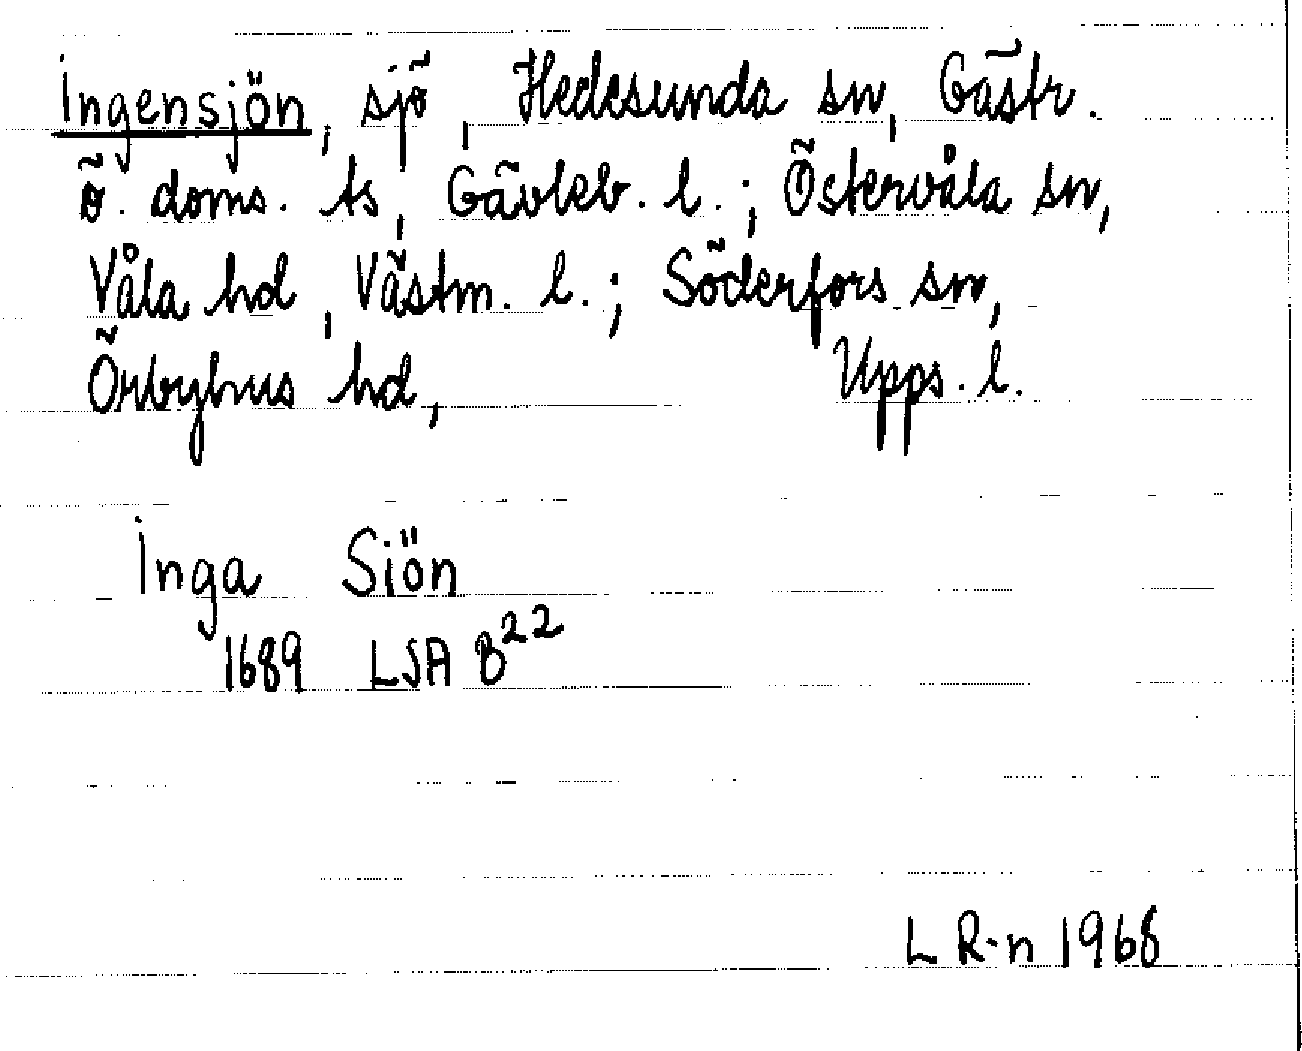 Ingensjön, sjö, Hedesunda sn, Gästr.
ö. doms. ts, Gävleb. l.; Östervåla sn,
Våla hd, Västm. l.; Söderfors sn,
Örbyhus hd, Upps. l.
Inga Siön
1689 LSA B²²
L R-n 1968